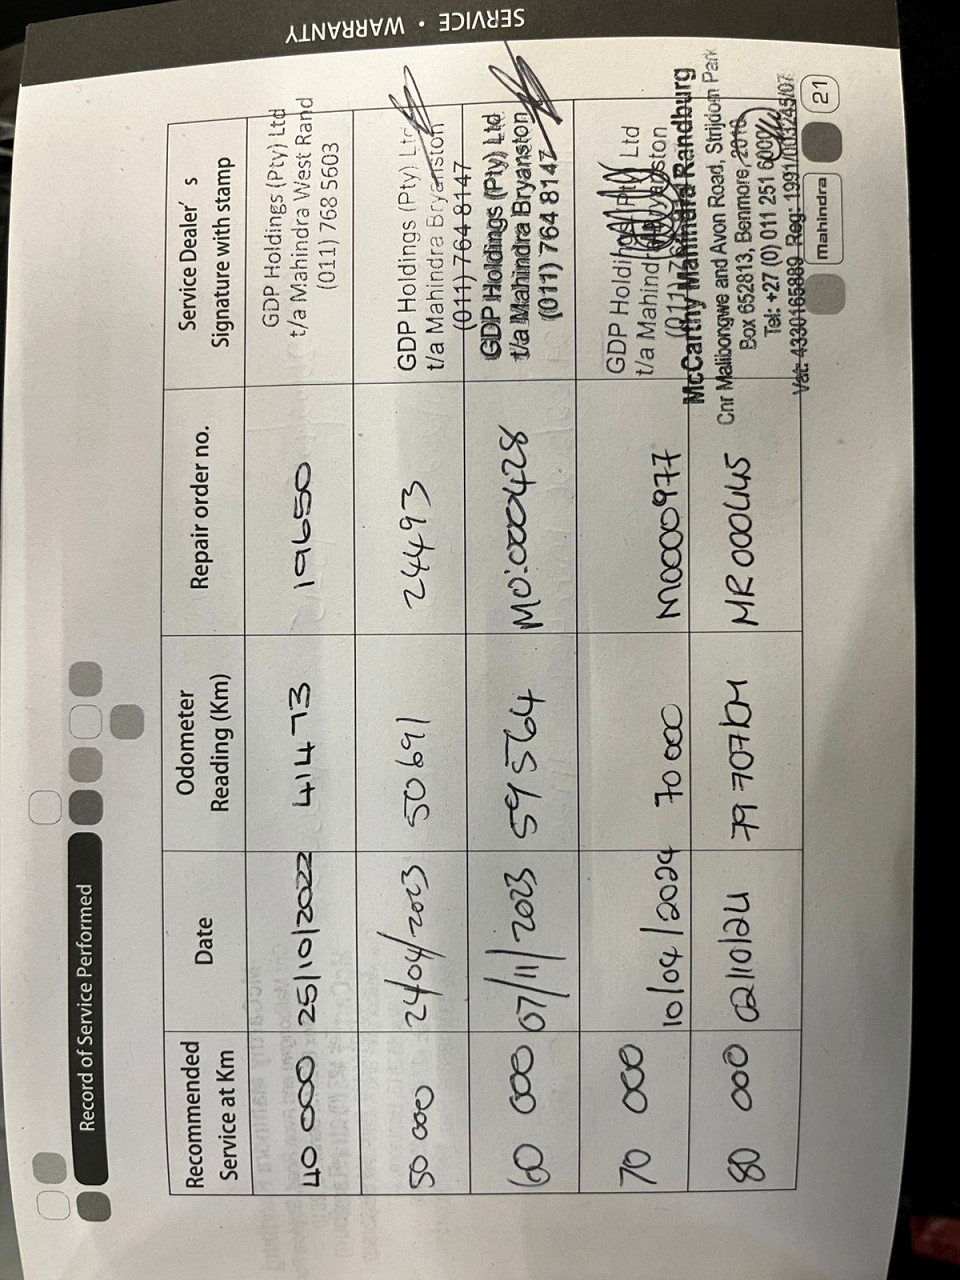 SERVICE • WARRANTY
Record of Service Performed
Recommended Service at Km
Date
Odometer Reading (Km)
Repair order no.
Service Dealer's Signature with stamp
40 000
25/10/2022
41473
19650
GDP Holdings (Pty) Ltd
t/a Mahindra West Rand
(011) 768 5603
50 000
24/04/2023
50691
24493
GDP Holdings (Pty) Ltd
t/a Mahindra Bryanston
(011) 764 8147
60 000
07/11/2023
59564
MO:000428
GDP Holdings (Pty) Ltd
t/a Mahindra Bryanston
(011) 764 8147
70 000
10/04/2024
70 000
M0000977
GDP Holdings (Pty) Ltd
t/a Mahindra Bryanston
80 000
02/10/24
79 707KM
MR000445
McCarthy Mahindra Randburg
Cnr Malibongwe and Avon Road, Strijdom Park
Box 652813, Benmore, 2010
Tel: +27 (0) 011 251 600
Vat: 4330165889 Reg: 1991/003245/07
mahindra
21